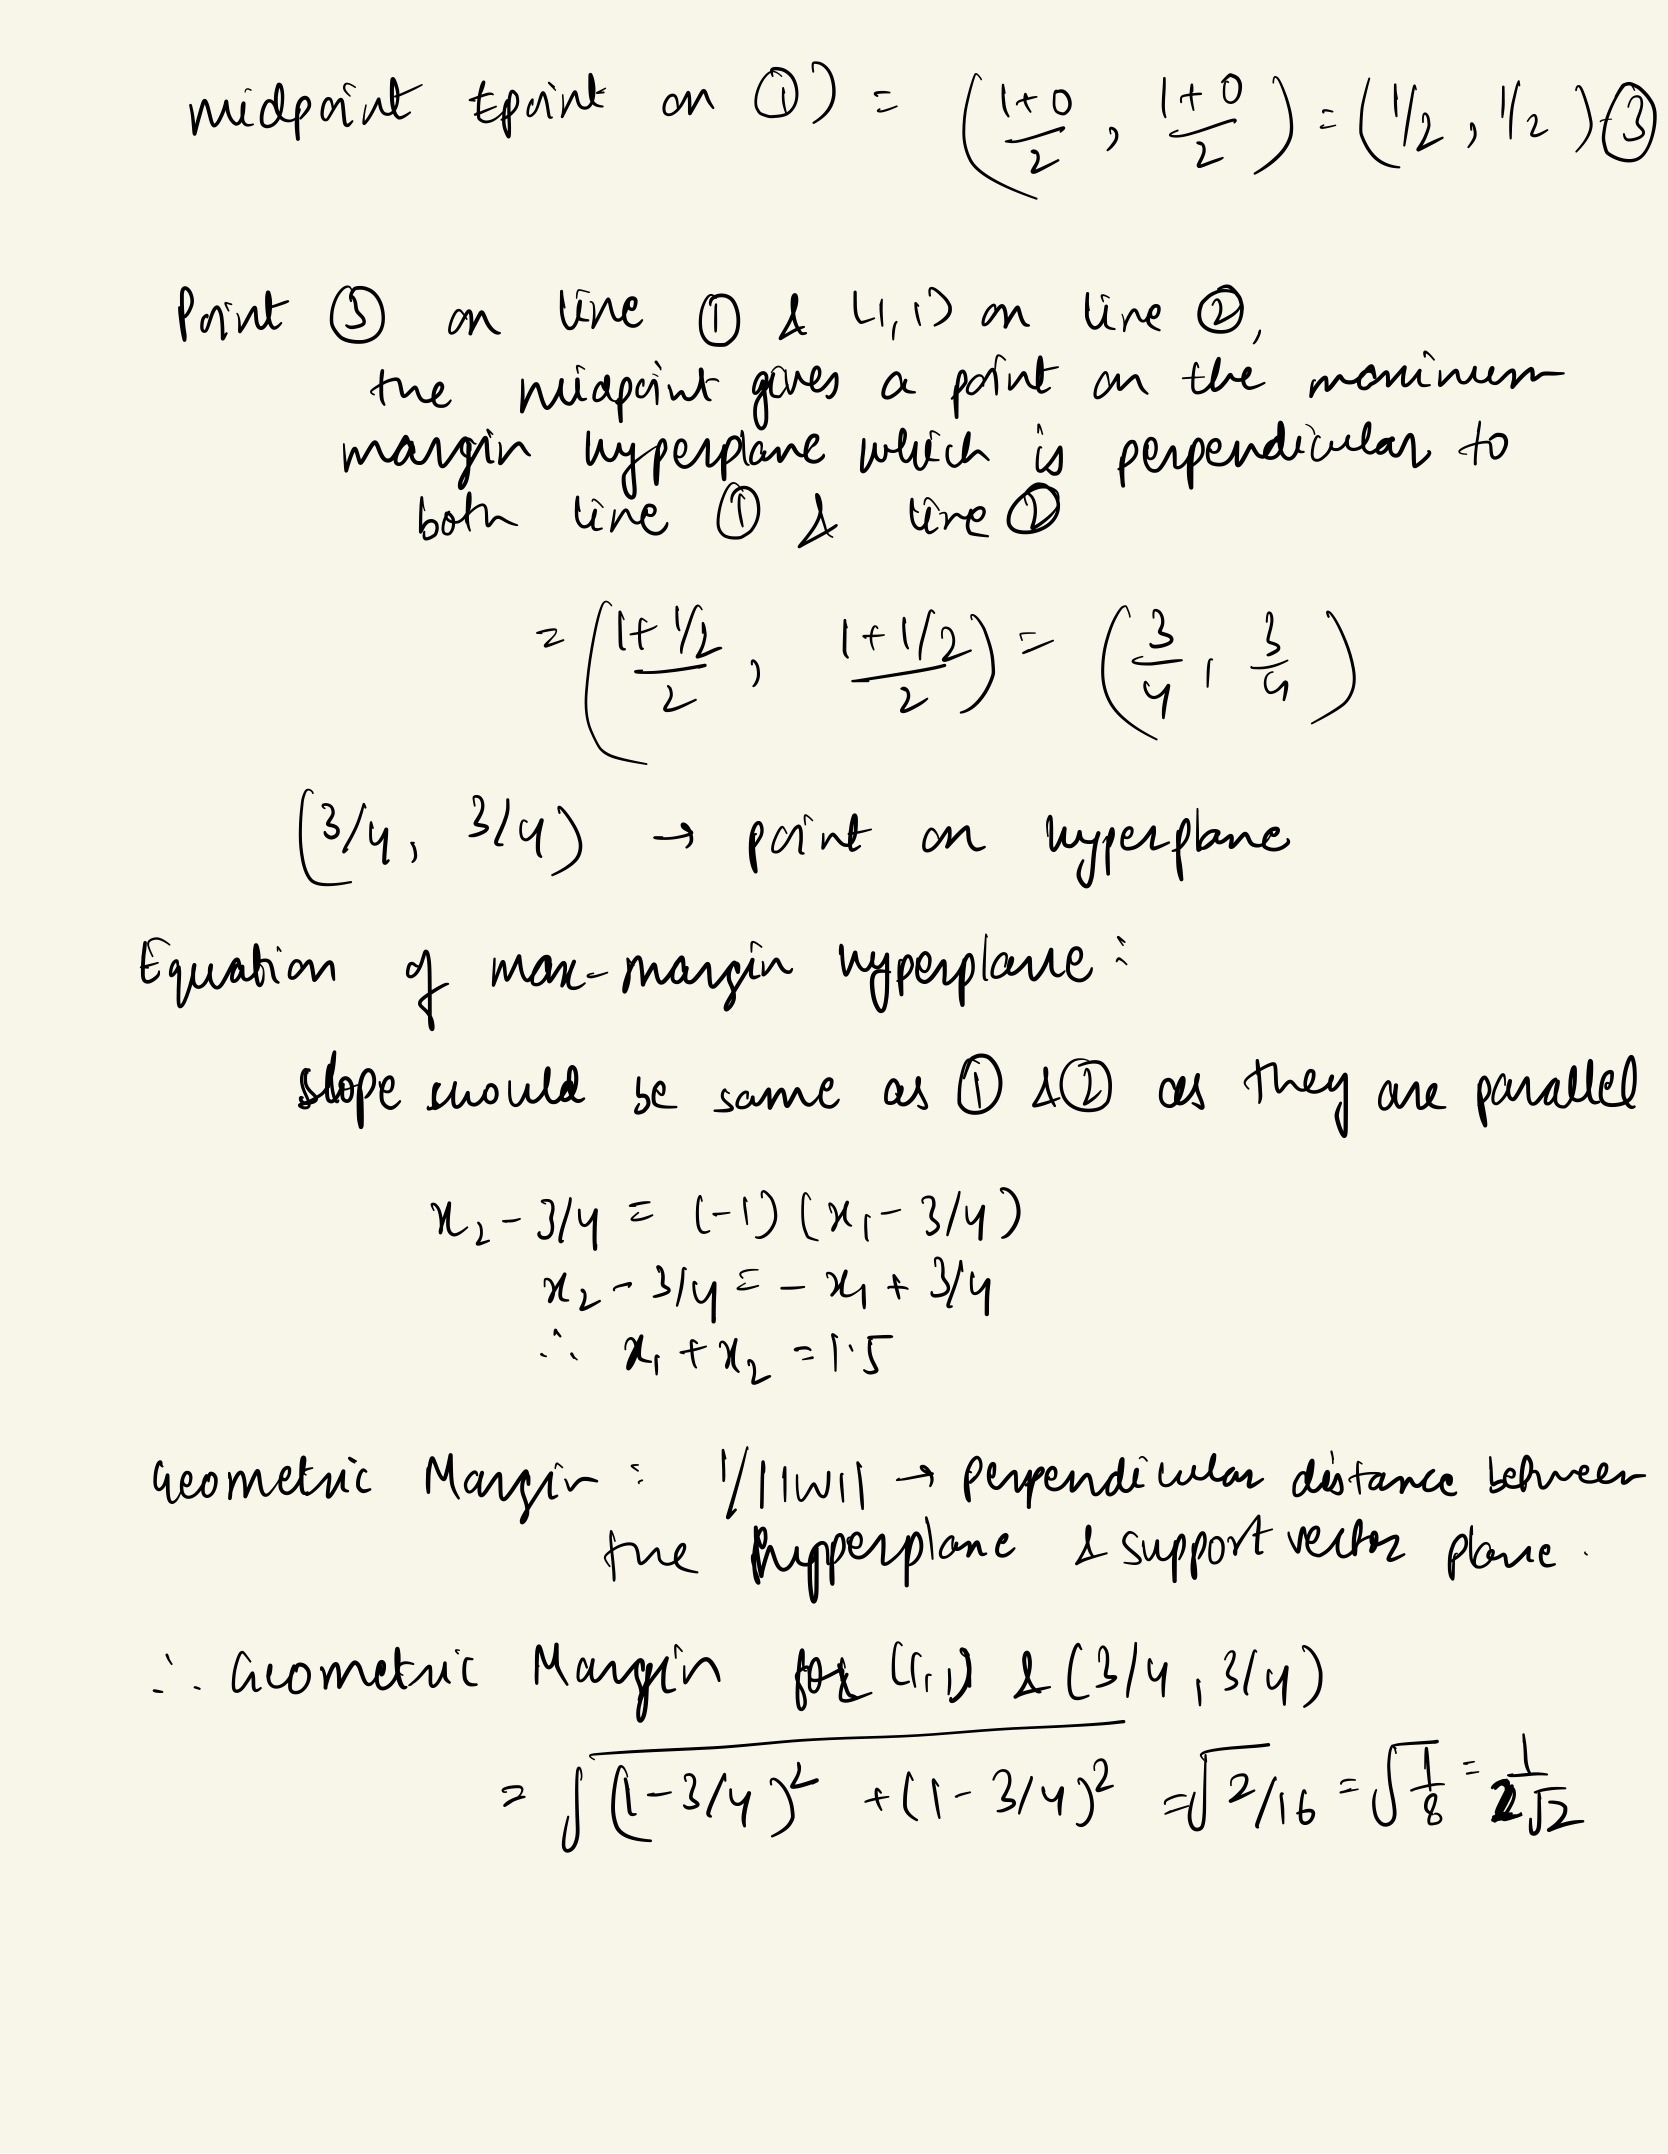 midpoint (point on ①) = (1+0/2, 1+0/2) = (1/2, 1/2) ③
Point ③ on line ① & (1,1) on line ②,
the midpoint gives a point on the maximum
margin hyperplane which is perpendicular to
both line ① & line ②
= (1+1/2/2, 1+1/2/2) = (3/4, 3/4)
(3/4, 3/4) → point on hyperplane
Equation of max-margin hyperplane:
slope should be same as ① & ② as they are parallel
x₂ - 3/4 = (-1)(x₁ - 3/4)
x₂ - 3/4 = - x₁ + 3/4
∴ x₁ + x₂ = 1.5
Geometric Margin : 1/||w|| → perpendicular distance between
the hypperplane & support vector plane.
∴ Geometric Margin for (1,1) & (3/4, 3/4)
= √(1-3/4)² + (1-3/4)² = √2/16 = √1/8 = 1/2√2